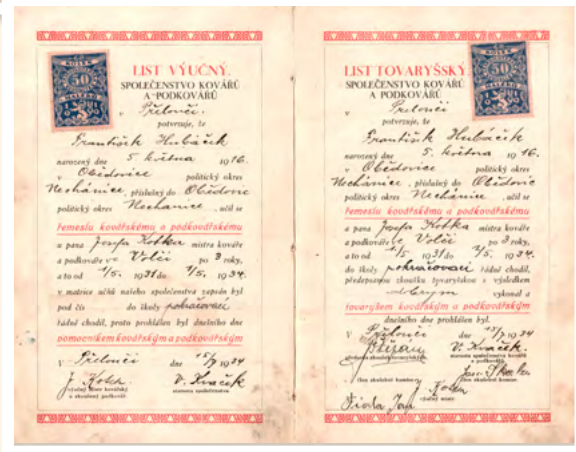 KOLEK
50
HALÉŘŮ
LIST VÝUČNÝ.
SPOLEČENSTVO KOVÁŘŮ
A PODKOVÁŘŮ
v Přelouči.
potvrzuje, že
František Hubáček
narozený dne 5. května 1916.
v Obědovice politický okres
Nechánice, příslušný do Obědovic
politický okres Nechanice, učil se
řemeslu kovářskému a podkovářskému
u pana Josefa Kotka mistra kováře
a podkováře ve Volči po 3 roky,
a to od 1/5. 1931 do 1/5. 1934.
v matrice učňů našeho společenstva zapsán byl
pod čís do školy pokračovací
řádně chodil, proto prohlášen byl dnešního dne
pomocníkem kovářským a podkovářským
V Přelouči dne 15/7 1934
J. Kotek V. Kvaček
výučný mistr kovářský starosta společenstva.
a zkoušený podkovář.
KOLEK
50
HALÉŘŮ
LIST TOVARYŠSKÝ
SPOLEČENSTVO KOVÁŘŮ
A PODKOVÁŘŮ
v Přelouči
potvrzuje, že
František Hubáček
narozený dne 5. května 1916.
v Obědovice politický okres
Nechánice, příslušný do Obědovic
politický okres Nechanice, učil se
řemeslu kovářskému a podkovářskému
u pana Josefa Kotka mistra kováře
a podkováře ve Volči po 3 roky,
a to od 1/5. 1931 do 1/5. 1934.
do školy pokračovací řádně chodil,
předepsanou zkoušku tovaryšskou s výsledkem
dobrým vykonal a
tovaryšem kovářským a podkovářským
dnešního dne prohlášen byl.
V Přelouči dne 15/7 1934
V. Kvaček
starosta společenstva kovářů
a podkovářů.
člen zkušební komise člen zkušební komise.
J. Kotek
výučný mistr